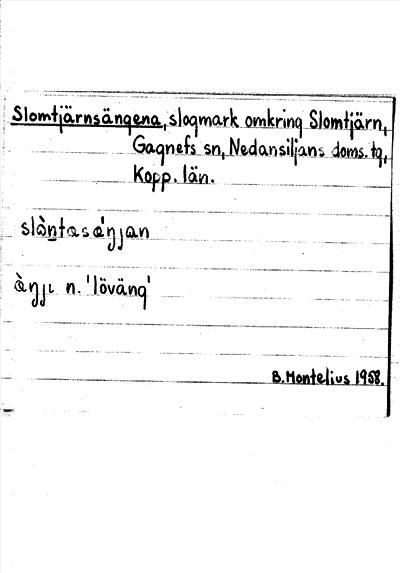 Slomtjärnsängena, slogmark omkring Slomtjärn,
Gagnefs sn, Nedansiljans doms. tg,
Kopp. län.
slàntasáŋjan
àŋjɩ n. 'löväng'
B. Montelius 1958.